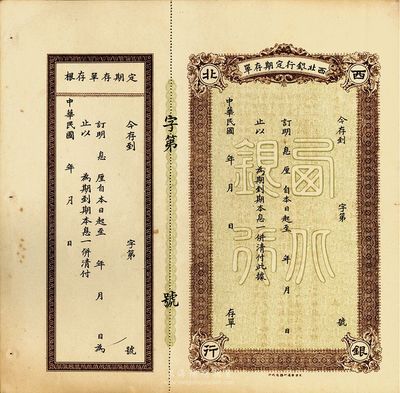 西北銀行定期存單
西
北
銀
行
今存到
字第 號
訂明 息 厘自本日起至 年 月 日
止以 為期到期本息一併清付此據
中華民國 年 月 日 存單
西北
銀行
字第 號
定期存單存根
今存到
字第 號
訂明 息 厘自本日起至 年 月 日為
止以 為期到期本息一併清付
中華民國 年 月 日